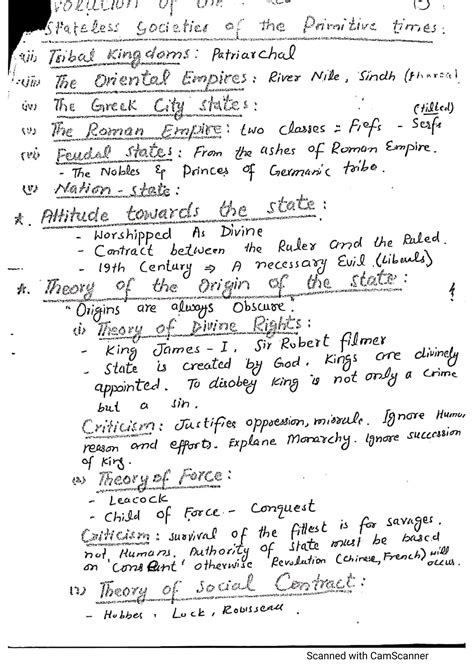 Evolution of the
Stateless Societies of the Primitive times:
(ii) Tribal Kingdoms: Patriarchal
(iii) The Oriental Empires: River Nile, Sindh
(iv) The Greek City states:
(tilled)
(v) The Roman Empire: two classes = Fiefs - Serfs
(vi) Feudal States: From the ashes of Roman Empire.
- The Nobles & Princes of Germanic tribe.
Nation - state:
*. Attitude towards the state:
- Worshipped As Divine
- Contract between the Ruler and the Ruled.
- 19th Century ⇒ A necessary Evil (Liberals)
*. Theory of the Origin of the state:
"Origins are always Obscure."
(i) Theory of Divine Rights:
- King James - I, Sir Robert filmer
- State is created by God. Kings are divinely
appointed. To disobey king is not only a crime
but a sin.
Criticism: Justifies oppession, misrule. Ignore Human
reason and efforts. Explane Monarchy. Ignore succession
of king.
(2) Theory of Force:
- Leacock
- Child of Force - Conquest
Criticism: survival of the fittest is for savages.
not Humans. Authority of state must be based
on 'Consent' otherwise Revolution (Chinese, French) will
occur.
Theory of Social Contract:
- Hobbes, Lock, Robusseau.
Scanned with CamScanner